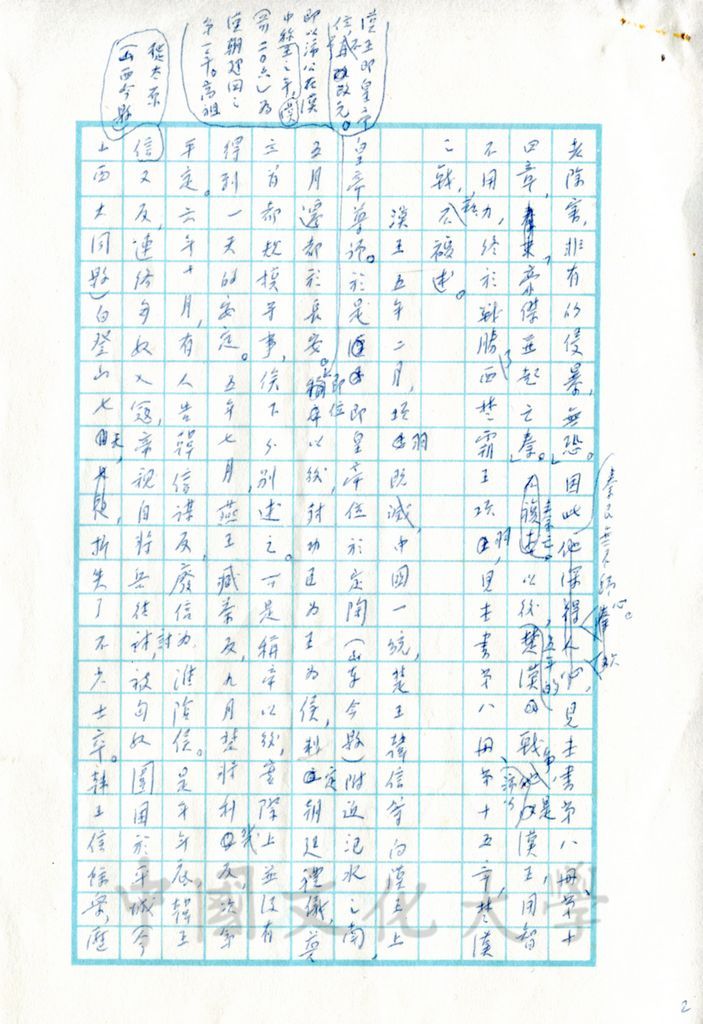 老除害，非有的侵暴，無恐」。因此他深得人心，見士書第八冊第十
四章，東豪傑並起亡秦。以後楚漢戰爭，是漢王，用智
不用力，終於戰勝了西楚霸王項羽，見士書第八冊第十五章，楚漢
之戰，不複述。
漢王五年二月，項羽既滅，中國一統，楚王韓信等向漢王上
皇帝尊號。於是即皇帝位於定陶（山東今縣）附近汜水之南，
五月還都於長安。即位以後，封功臣為王為侯，制定朝廷禮儀，營
立首都規模等事，俟下分別述之。可是稱帝以後，實際上並沒有
得到一天的安定。五年七月，燕王臧荼反，九月楚將利幾反，次年
平定。六年十月，有人告韓信謀反，廢信為淮陰侯。是年年底，韓王
信又反，連絡匈奴入寇，帝親自將兵往討，被匈奴圍困於平城今
山西大同縣）白登山七天，折失了不少士卒。韓王信條梁，歷
漢王即皇帝
位不改元。
即以沛公在漢
中稱王之年
（前二〇六）為
漢朝建國之
第一年。高祖
從太原
（山西今縣）
秦民無不歸心。
五年的
中國文化大學
2